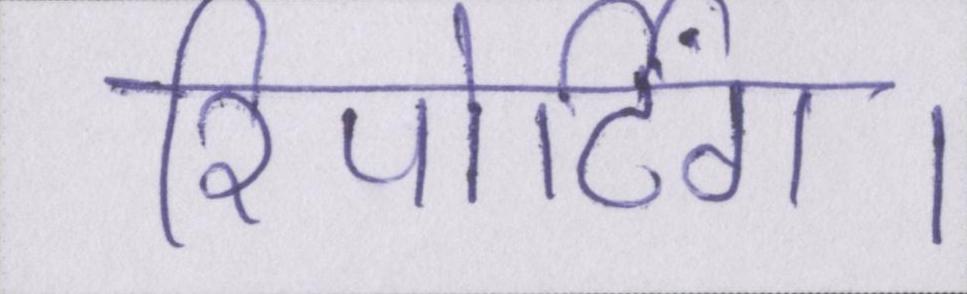 रिपोर्टिंग।